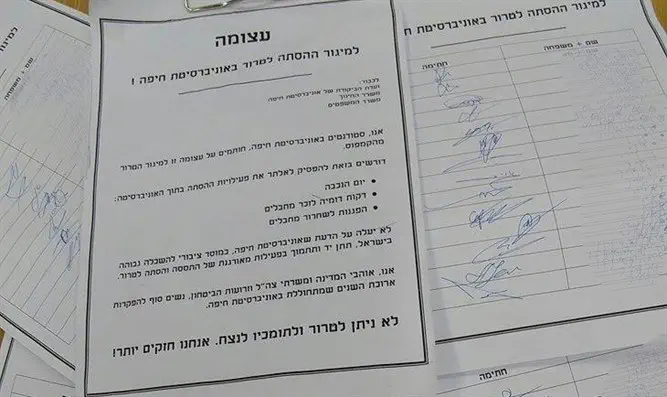 עצומה
למיגור ההסתה לטרור באוניברסיטת חיפה !
לכבוד:
ועדת הביקורת של אוניברסיטת חיפה
משרד החינוך
משרד המשפטים
אנו, סטודנטים באוניברסיטת חיפה, חותמים על עצומה זו למיגור הטרור
מהקמפוס.
דורשים בזאת להפסיק לאלתר את פעילויות ההסתה בתוך האוניברסיטה:
• יום הנכבה
• דקות דומיה לזכר מחבלים
• הפגנות לשחרור מחבלים
לא יעלה על הדעת שאוניברסיטת חיפה, כמוסד ציבורי להשכלה גבוהה
בישראל, תתן יד ותתמוך בפעילות מאורגנת של התססה והסתה לטרור.
אנו, אוהבי המדינה ומשרתי צה"ל וזרועות הביטחון, נשים סוף להפקרות
ארוכת השנים שמתחוללת באוניברסיטת חיפה.
לא ניתן לטרור ולתומכיו לנצח. אנחנו חזקים יותר!
למיגור ההסתה לטרור באוניברסיטת חיפה
שם + משפחה
חתימה
למיגור
שם + משפחה
חתימה